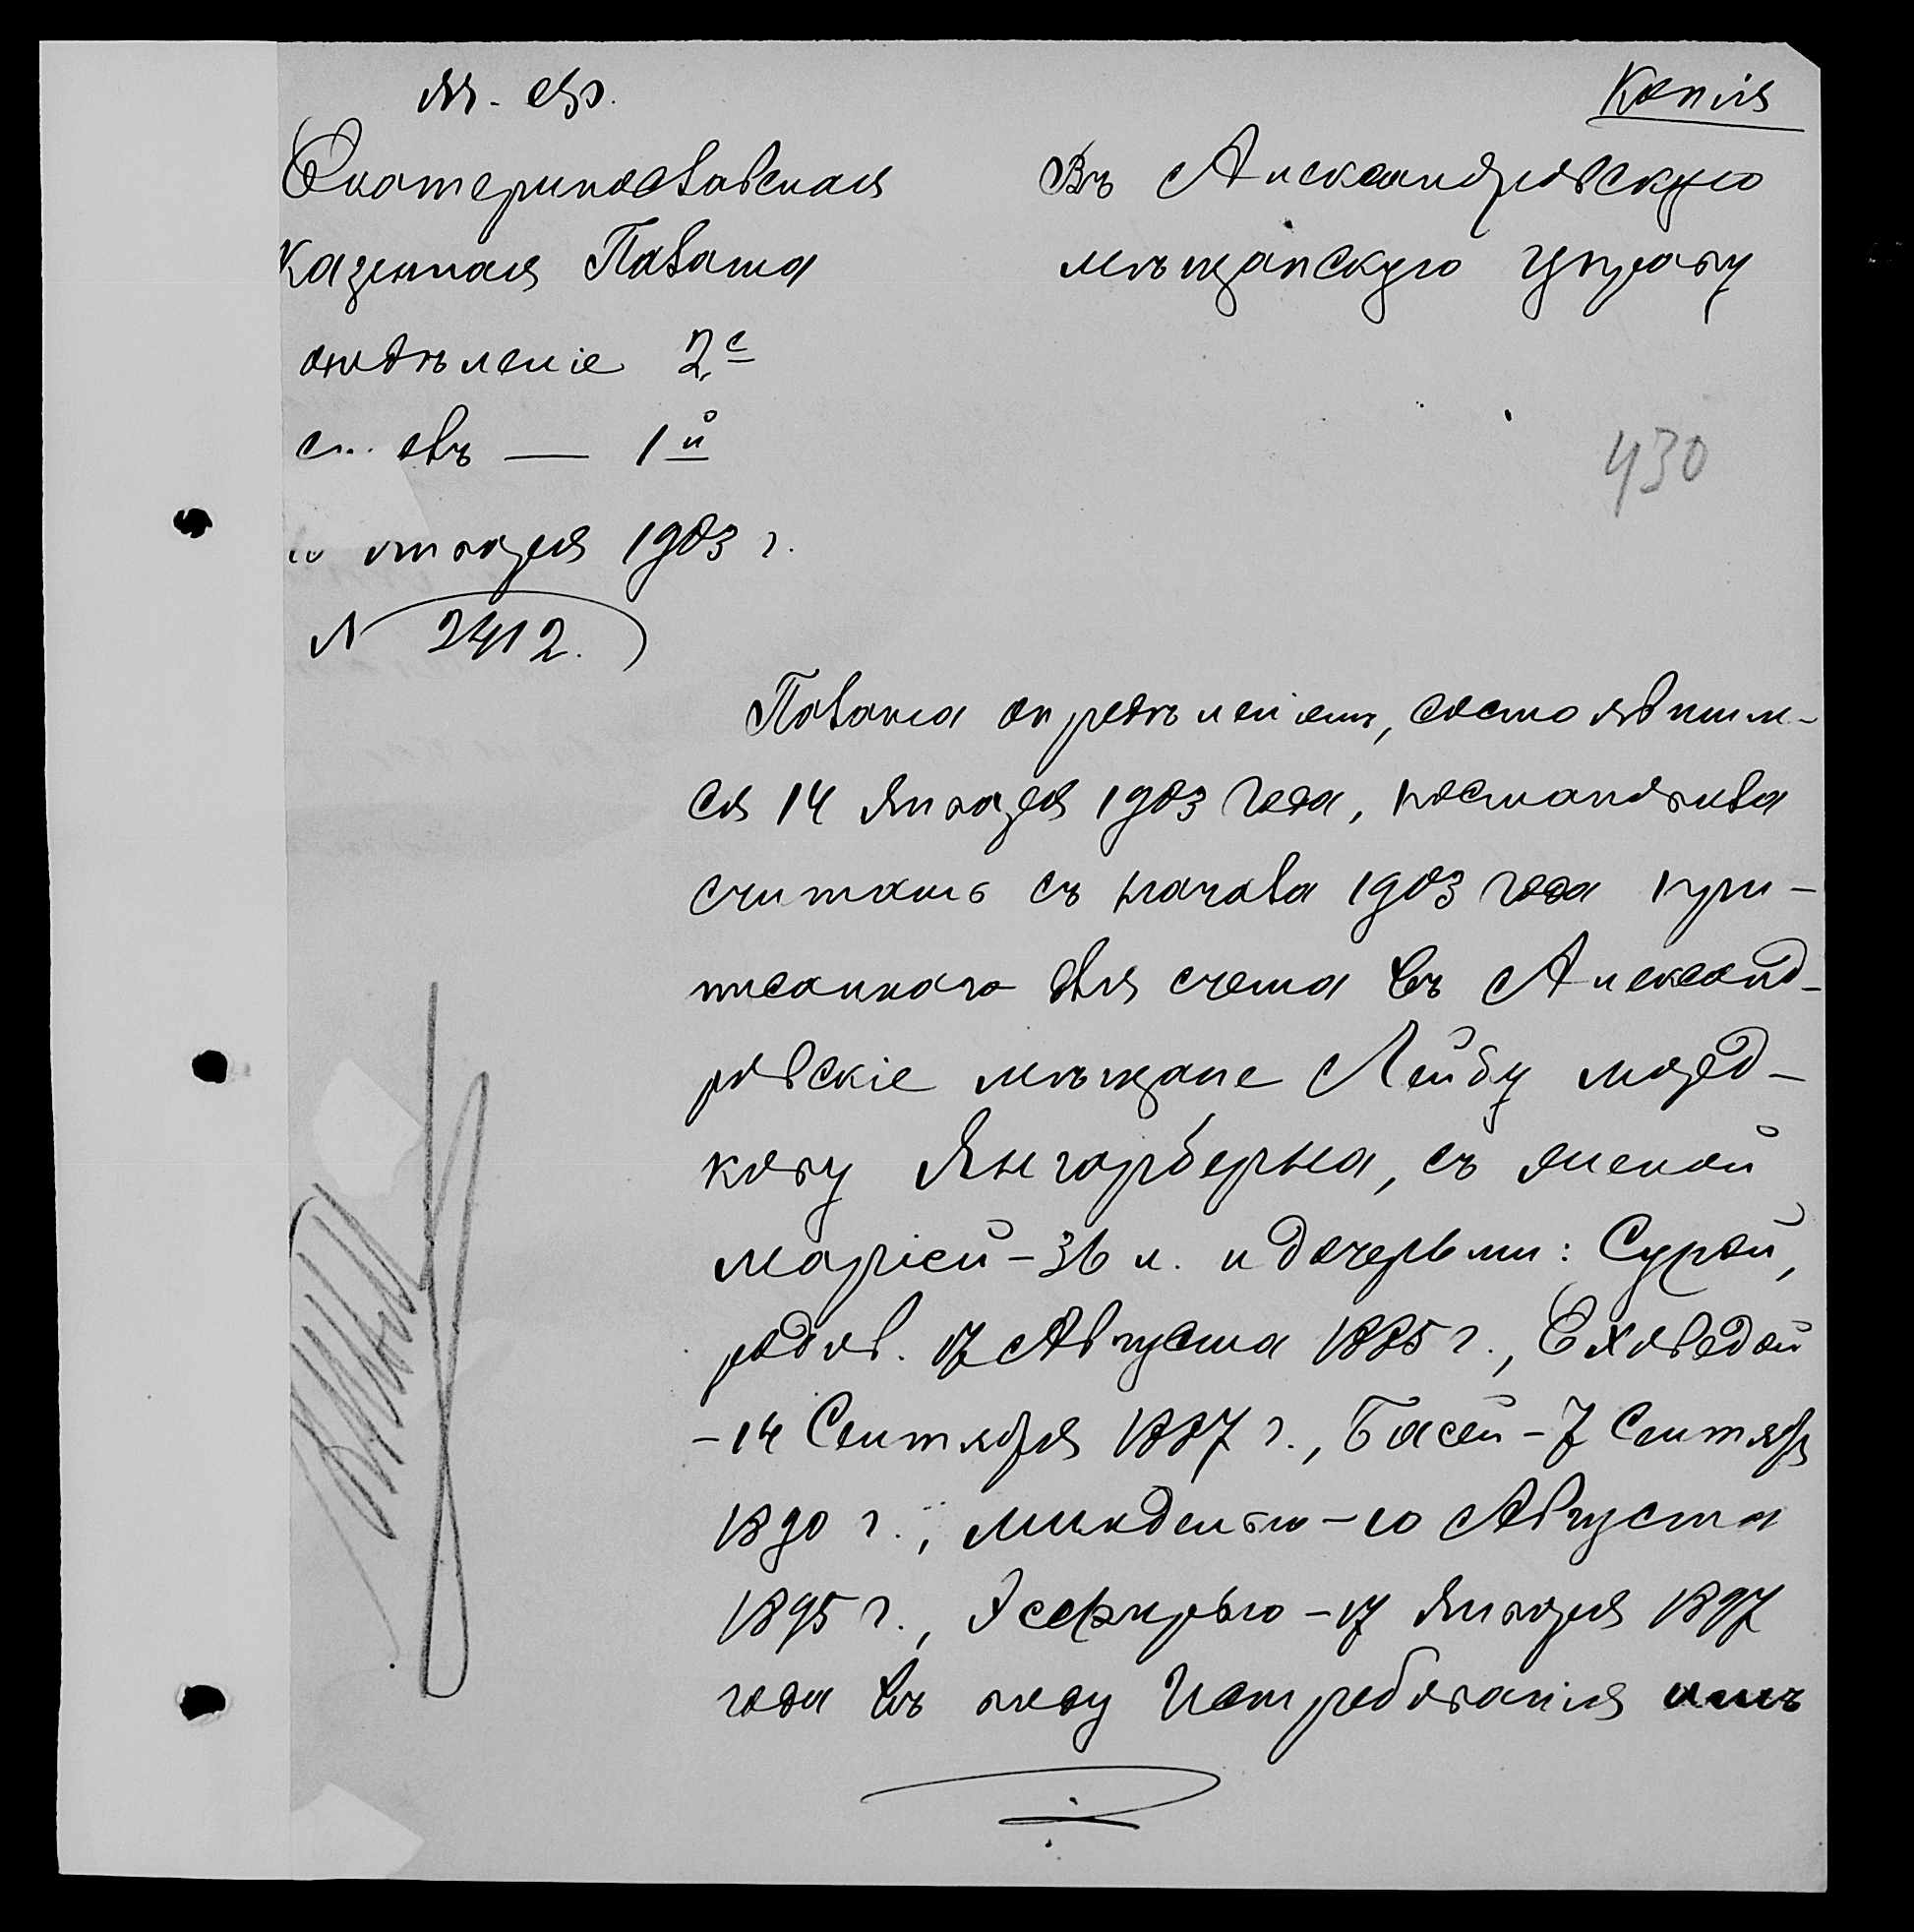 М. Ф.
Копія
Екатеринославская
Казенная Палата
отдѣленіе 2е
столъ — 1й
января 1903 г.
N 2412.
Въ Александровскую
мѣщанскую управу
430
Палата опредѣленіемъ, состоявшим-
ся 14 Января 1903 года, постановила
считать съ начала 1903 года при-
писаннаго для счета въ Александ-
ровскіе мѣщане Лейбу Морд-
кову Янгарберна, съ женой
Маріей – 36 л. и дочерьми: Сурой,
родив. 17 Августа 1885 г., Еховедой
– 14 Сентября 1887 г., Басей – 7 Сентября
1890 г., Миндлею – 10 Августа
1895 г., Эсфирью – 17 Января 1897
года въ виду истребованія имъ